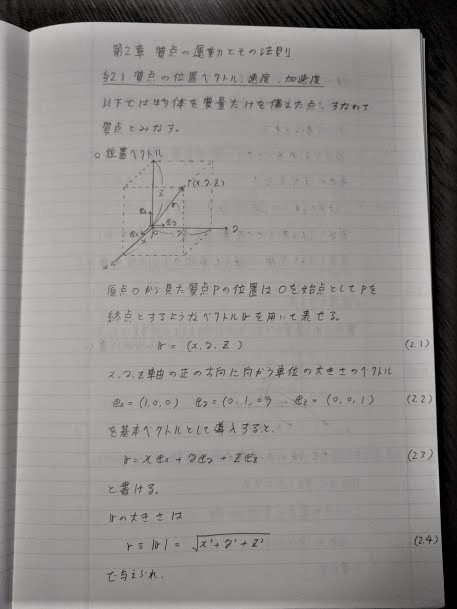 第2章 質点の運動とその法則
§2.1 質点の位置ベクトル, 速度, 加速度
以下では物体を質量だけを備えた点, すなわち
質点とみなす。
○ 位置ベクトル
z
P(x, y, z)
r
ez
ex
ey
O
x
y
y
x
原点Oから見た質点Pの位置はOを始点としてPを
終点とするようなベクトルrを用いて表せる。
r = (x, y, z) (2.1)
x, y, z軸の正の方向に向かう単位の大きさのベクトル
ex = (1, 0, 0) ey = (0, 1, 0) , ez = (0, 0, 1) (2.2)
を基本ベクトルとして導入すると,
r = xex + yey + zez (2.3)
と書ける。
rの大きさは
r ≡ |r| = √x² + y² + z² (2.4)
で与えられ.